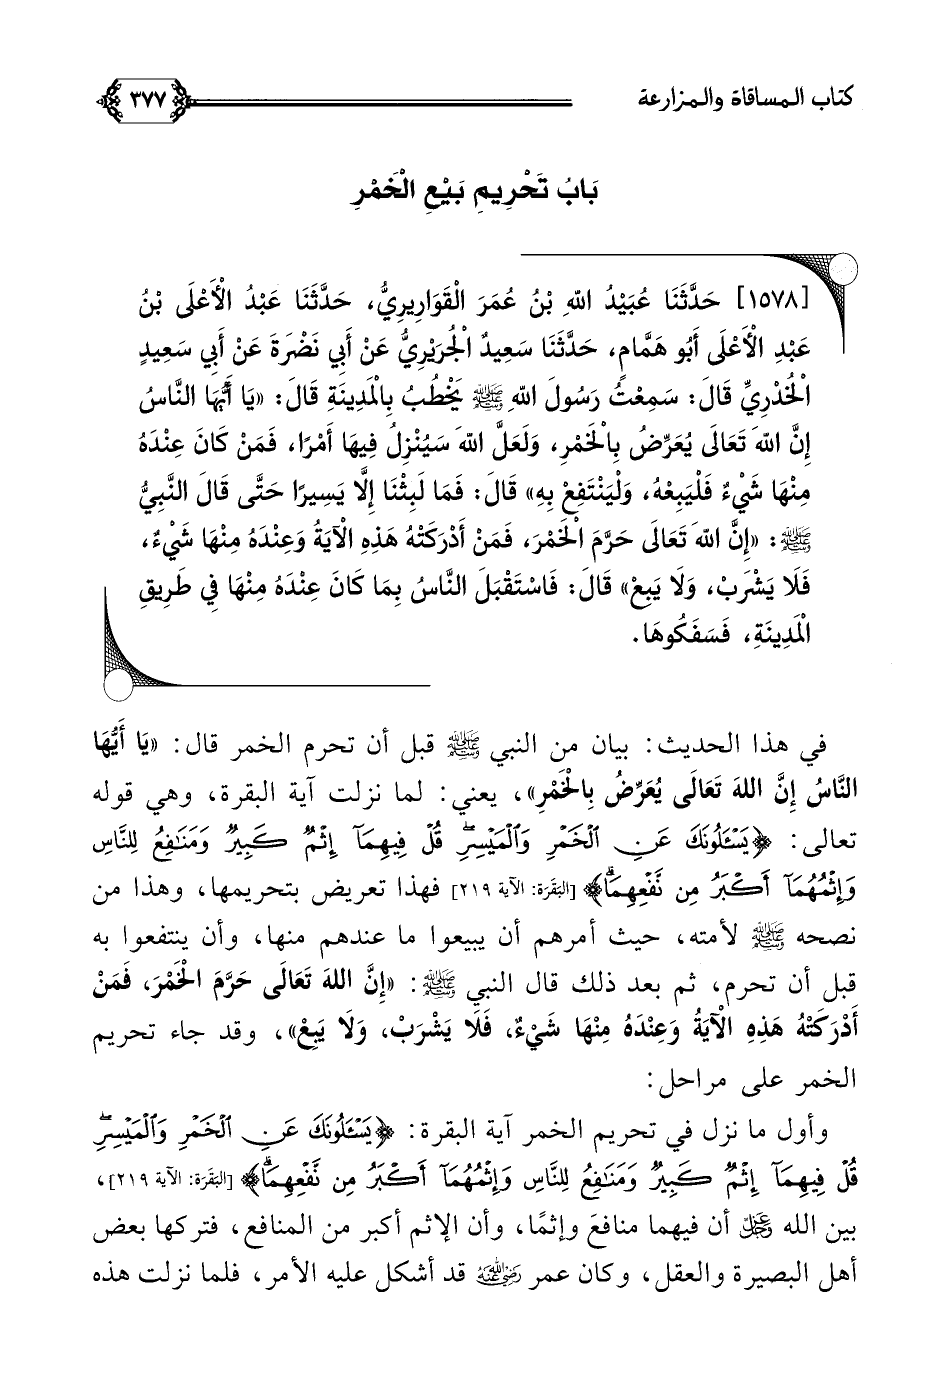 كتاب المساقاة والمزارعة ٣٧٧
بَابُ تَحْرِيمِ بَيْعِ الْخَمْرِ
[١٥٧٨] حَدَّثَنَا عُبَيْدُ اللهِ بْنُ عُمَرَ الْقَوَارِيرِيُّ، حَدَّثَنَا عَبْدُ الْأَعْلَى بْنُ
عَبْدِ الْأَعْلَى أَبُو هَمَّامٍ، حَدَّثَنَا سَعِيدٌ الْجُرَيْرِيُّ عَنْ أَبِي نَضْرَةَ عَنْ أَبِي سَعِيدٍ
الْخُدْرِيِّ قَالَ: سَمِعْتُ رَسُولَ اللهِ ﷺ يَخْطُبُ بِالْمَدِينَةِ قَالَ: «يَا أَيُّهَا النَّاسُ
إِنَّ اللهَ تَعَالَى يُعَرِّضُ بِالْخَمْرِ، وَلَعَلَّ اللهَ سَيُنْزِلُ فِيهَا أَمْرًا، فَمَنْ كَانَ عِنْدَهُ
مِنْهَا شَيْءٌ فَلْيَبِعْهُ، وَلْيَنْتَفِعْ بِهِ» قَالَ: فَمَا لَبِثْنَا إِلَّا يَسِيرًا حَتَّى قَالَ النَّبِيُّ
ﷺ: «إِنَّ اللهَ تَعَالَى حَرَّمَ الْخَمْرَ، فَمَنْ أَدْرَكَتْهُ هَذِهِ الْآيَةُ وَعِنْدَهُ مِنْهَا شَيْءٌ،
فَلَا يَشْرَبْ، وَلَا يَبِعْ» قَالَ: فَاسْتَقْبَلَ النَّاسُ بِمَا كَانَ عِنْدَهُ مِنْهَا فِي طَرِيقِ
الْمَدِينَةِ، فَسَفَكُوهَا.
في هذا الحديث: بيان من النبي ﷺ قبل أن تحرم الخمر قال: «يَا أَيُّهَا
النَّاسُ إِنَّ اللهَ تَعَالَى يُعَرِّضُ بِالْخَمْرِ»، يعني: لما نزلت آية البقرة، وهي قوله
تعالى: ﴿يَسْـَٔلُونَكَ عَنِ ٱلْخَمْرِ وَٱلْمَيْسِرِۖ قُلْ فِيهِمَآ إِثْمٌ كَبِيرٌ وَمَنَٰفِعُ لِلنَّاسِ
وَإِثْمُهُمَآ أَكْبَرُ مِن نَّفْعِهِمَاۗ﴾ [البَقَرَة: الآية ٢١٩] فهذا تعريض بتحريمها، وهذا من
نصحه ﷺ لأمته، حيث أمرهم أن يبيعوا ما عندهم منها، وأن ينتفعوا به
قبل أن تحرم، ثم بعد ذلك قال النبي ﷺ: «إِنَّ اللهَ تَعَالَى حَرَّمَ الْخَمْرَ، فَمَنْ
أَدْرَكَتْهُ هَذِهِ الْآيَةُ وَعِنْدَهُ مِنْهَا شَيْءٌ، فَلَا يَشْرَبْ، وَلَا يَبِعْ»، وقد جاء تحريم
الخمر على مراحل:
وأول ما نزل في تحريم الخمر آية البقرة: ﴿يَسْـَٔلُونَكَ عَنِ ٱلْخَمْرِ وَٱلْمَيْسِرِۖ
قُلْ فِيهِمَآ إِثْمٌ كَبِيرٌ وَمَنَٰفِعُ لِلنَّاسِ وَإِثْمُهُمَآ أَكْبَرُ مِن نَّفْعِهِمَاۗ﴾ [البَقَرَة: الآية ٢١٩]،
بين الله ﷿ أن فيهما منافعَ وإثمًا، وأن الإثم أكبر من المنافع، فتركها بعض
أهل البصيرة والعقل، وكان عمر رضي الله عنه قد أشكل عليه الأمر، فلما نزلت هذه